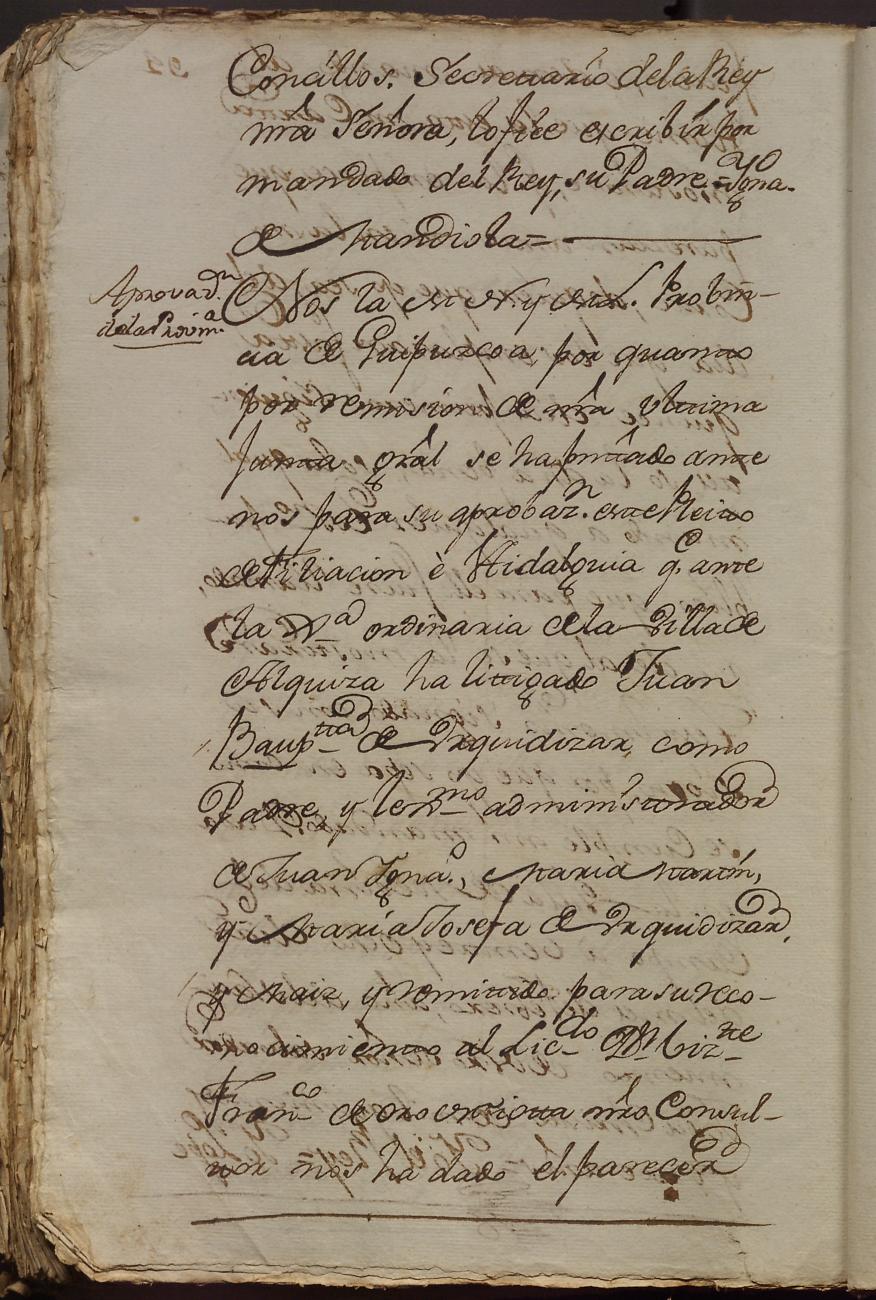 Concillos. Secretario de la Rey
nrã Señora, lo fice escribir por
mandado del Rey, su Padre = Ygna.º
de Mandiola =
Aprovaçn
de la Provinª
Nos la M. N. y M. L. Probin-
cia de Guipuzcoa, por quanto
por remision de nrã ultima
Junta grãl se ha prntado ante
nos para su aprobazn. este Pleito
de Filiacion è Hidalguia q.e ante
la Jª ordinaria de la Villa de
Alquiza ha litigado Juan
Baupttª de Yrquidizar, como
Padre, y lexmo administrador
de Juan Ygnaº, Maria Martin,
y Maria Josefa de Yrquidizar,
y Maiz, y remitido para su reco-
nocimiento al Licdo Dn. Bizte
Francº de nrõ Consul-
tor nos ha dado el parecer